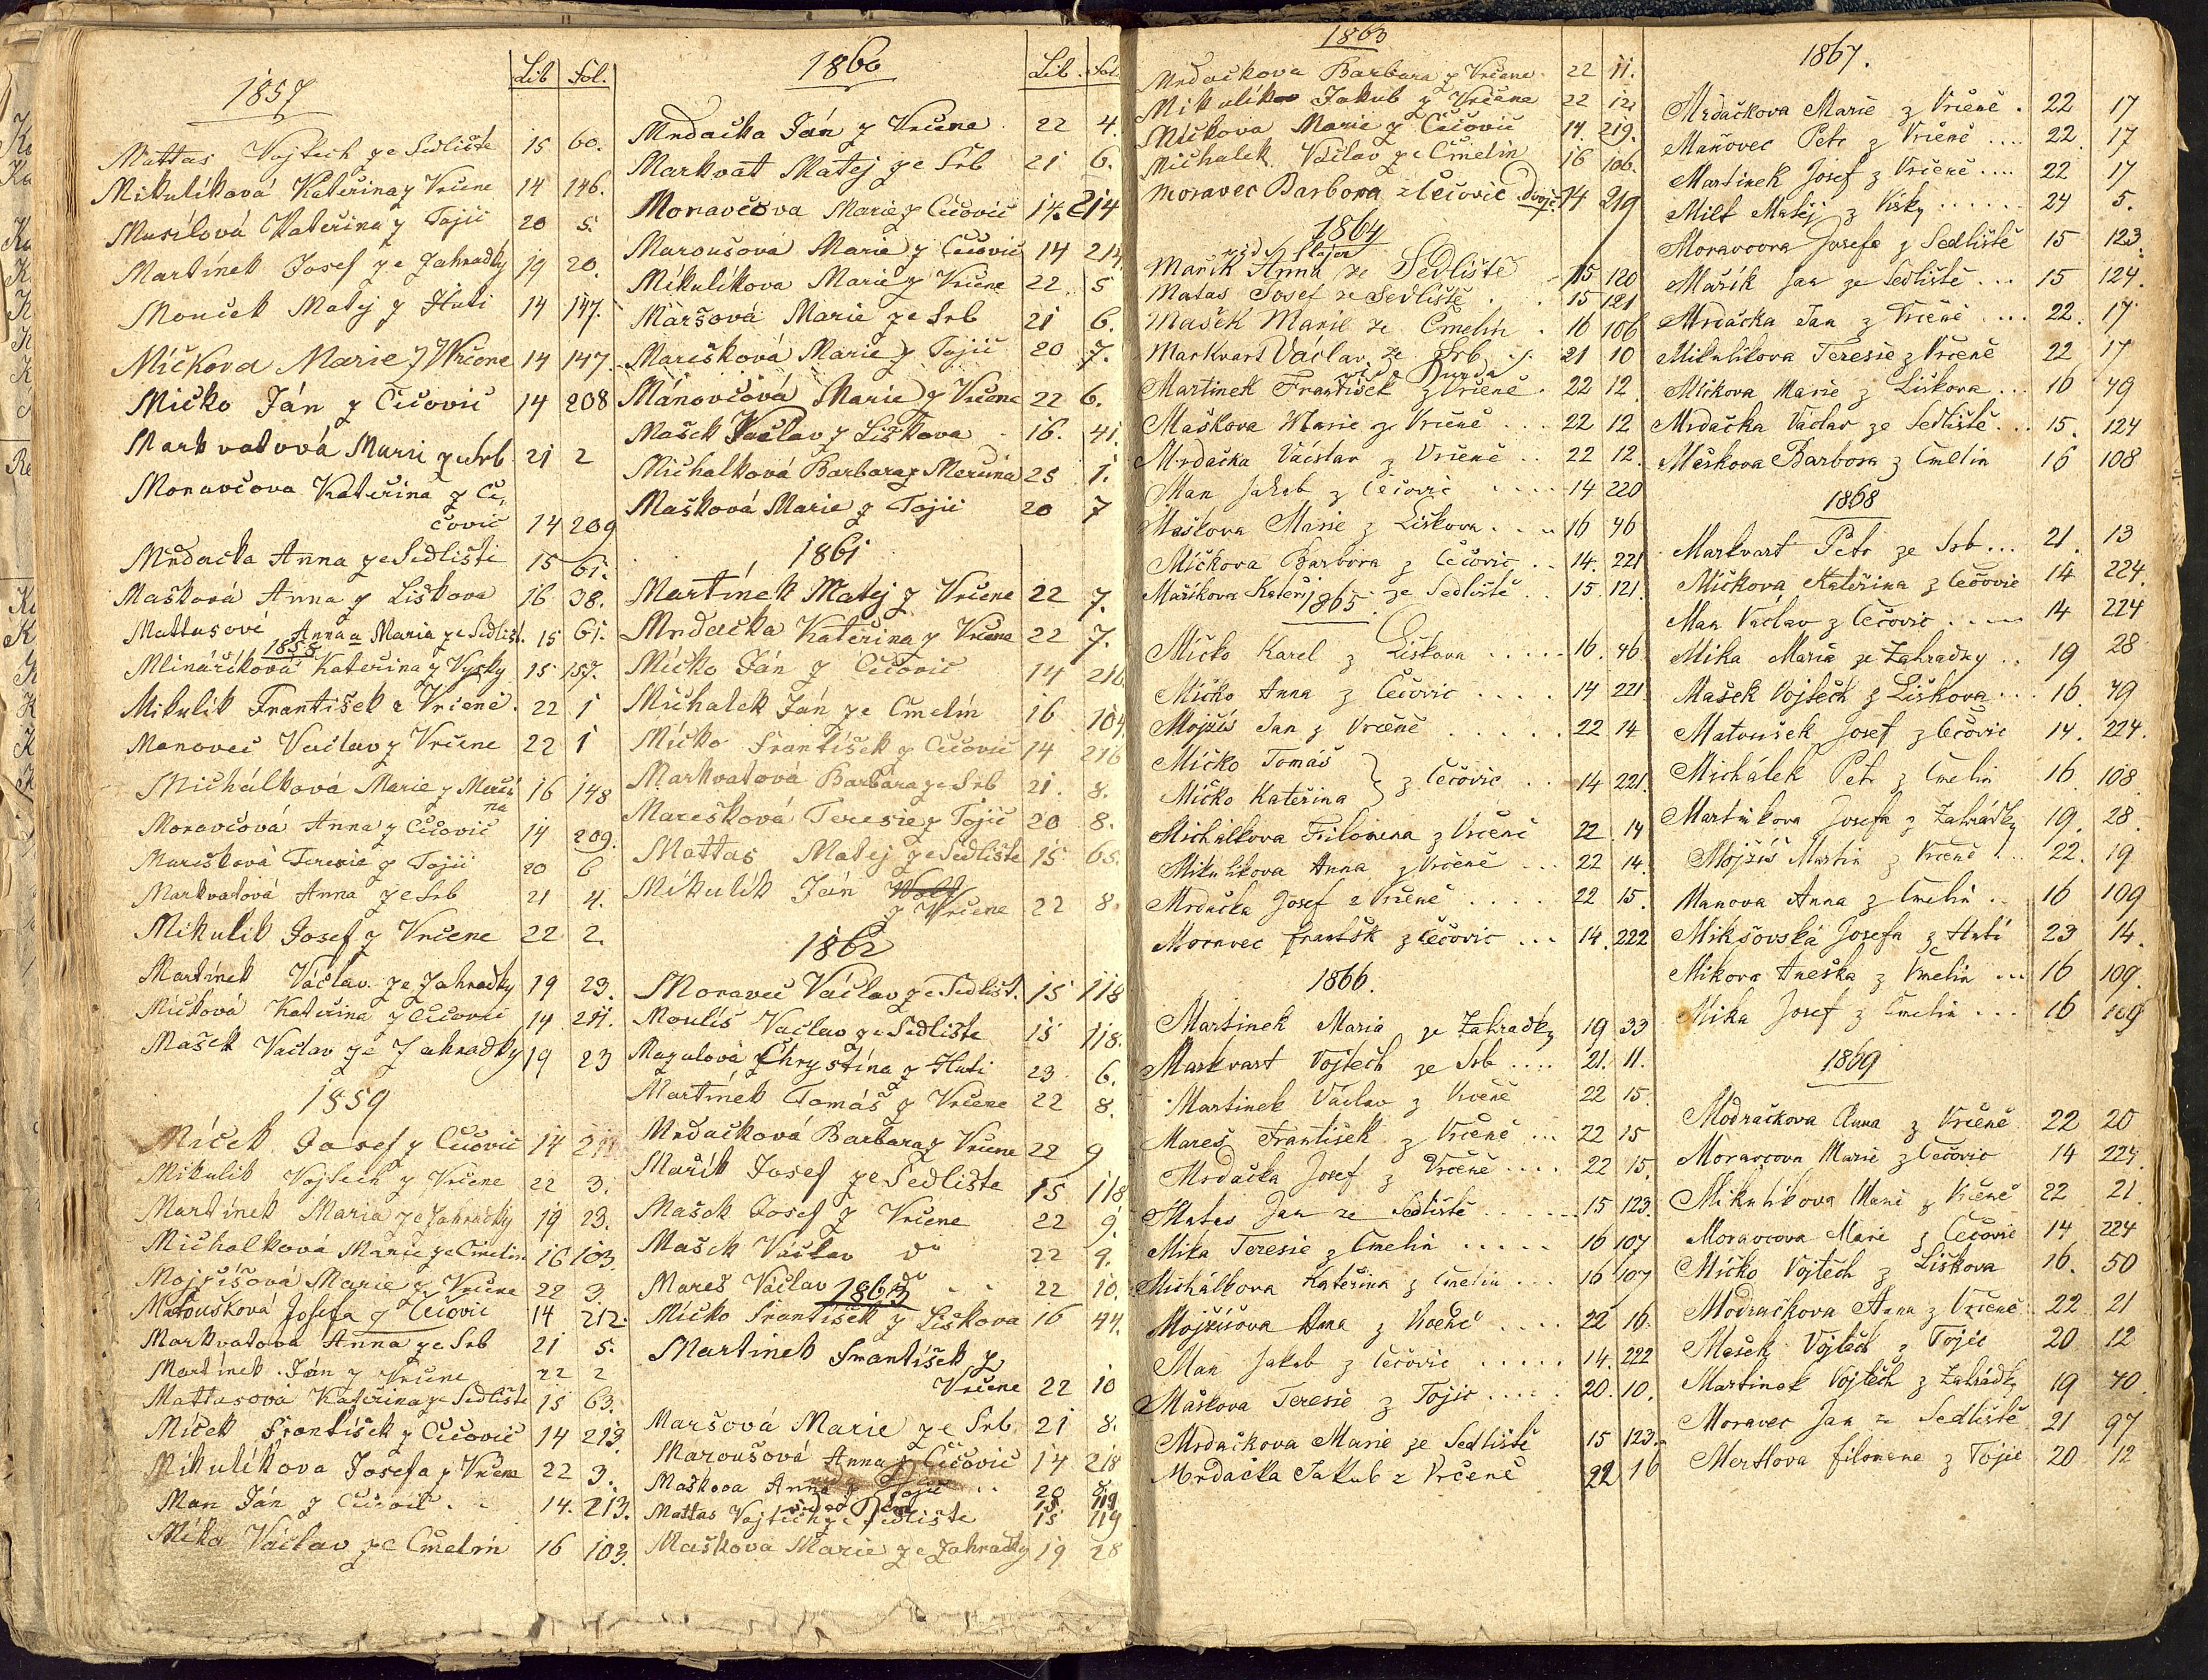 Lib Fol.
1857
Mattas Vojtech ze Sedliste 15 60.
Mikulíková Kateřina z Vrčene 14 146.
Musílová Kateřina z Tojic 20 5.
Martínek Josef ze Zahradky 19 20.
Mouček Matej z Huti 14 147.
Míčkova Marie z Wrčene 14 147.
Mičko Ján z Čičovic 14 208
Markvatová Marie ze Srb 21 2
Moravčova Kateřina z Či,
čovic 14 209
Mrďačka Anna ze Sedlišti 15 61.
Mašková Anna z Liškova 16 38.
Mattasové Anna a Maria ze Sedlišt. 15 61.
1858
Mlináříková Kateřina z Vysky 15 157.
Mikulik František z Vrčeně. 22 1
Manovec Vaclav z Vrčene 22 1
Michálková Marie z Merčí
na 16 148
Moravčová Anna z Čičovic 14 209.
Marešková Teresie z Tojic 20 6
Markvatová Anna ze Srb 21 4.
Mikulik Josef z Vrčene 22 2.
Martínek Václav ze Zahradky 19 23.
Míčková Kateřina z Čičovic 14 211.
Mašek Vaclav ze Zahradky 19 23
1859
Míček Josef z Čičovic 14
Mikulik Vojtech z Vrčene 22 3.
Martínek Maria ze Zahradky 19 23.
Michalková Marie ze Čmelin 16 103.
Mojzíšová Marie z Vrčene 22 3.
Matoušková Josefa z Čečovic 14 212.
Markvatova Anna ze Srb 21 5.
Martínek Ján z Vrčene 22 2
Mattasová Kateřina ze Sedliste 15 63.
Míček František z Čičovic 14 213.
Mikulíkova Josefa z Vrčene 22 3.
Man Ján z Čičovic . . 14. 213.
Míka Václav ze Čmelin 16 103.
1860
Lib. Fol.
Mrdačka Ján z Vrčene 22 4.
Markvat Matej ze Srb 21 6.
Moravčova Marie z Čičovic 14. 214
Maroušová Marie z Čičovic 14 214.
Mikulíkova Marie z Vrčene 22 5
Maršová Marie ze Srb 21 6.
Marešková Marie z Tojic 20 7.
Mánovčová Marie z Vrčene 22 6.
Mašek Václav z Liškova 16. 41.
Michalková Barbara z Merčina 25 1.
Mašková Marie z Tojic 20 7
1861
Martínek Matej z Vrčene 22 7.
Mrdačka Kateřina z Vrčene 22 7.
Míčko Ján z Čičovic 14 216
Michalek Ján ze Čmelín 16 104
Míčko František z Čičovic 14 216
Markvatová Barbara ze Srb 21. 8.
Marešková Teresie z Tojic 20 8.
Mattas Matej ze Sedliste 15 65.
Mikulík Ján
z Vrčene 22 8.
1862
Moravec Václav ze Sedlišt. 15 118
Moulis Vaclav ze Sedliste 15 118.
Magulova Chrystína z Huti 23 6.
Martínek Tomáš z Vrčene 22 8.
Mrďačková Barbara z Vrčene 22 9
Mařík Josef ze Sedliste 15 118
Mašek Josef z Vrčene 22 9.
Mašek Václav do 22 9.
Mareš Václav do . . 22 10.
1863
Míčko František z Liškova 16 44.
Martinek František z
Vrčene 22 10
Maršová Marie ze Srb 21 8.
Maroušová Anna z Čičovic 14 218
Maškova Anna z Tojic . . 20 8
Mattas Vojtěch ze Sedliste 15 119
Maškova Marie ze Zahradky 19 28
1863
Mrdačkova Barbara z Vrčene 22 11.
Mikulíkov Jakub z Vrčene 22 12.
Míčkova Marie z Čičovic 14. 219.
Michalek Václav ze Čmelin 16 106.
Moravec Barbora z Čečovic dvoje: 14 219
1864
vide Slajer
Mařik Anna ze Sedliště 15 120
Matas Josef ze Sedliště . . 15 121
Mašek Marie ze Čmelín . 16 106
Markvart Václav ze Srb . 21 10
vide Burda
Martinek František z Vrčeně . 22 12
Maškova Marie ze Vrčeně . . . 22 12
Mrdačka Václav z Vrčeně . . 22 12.
Man Jakub z Čečovic . . . . 14 220
Maškova Marie z Liškova . . . . 16 46
Míčkova Barbora z Čečovic . . 14. 221
Maříkova Kateři. ze Sedliště . . 15. 121.
1865
Míčko Karel z Liškova . . . . . 16. 46.
Míčko Anna z Čečovic . . . . 14 221
Mojžís Jan z Vrčeně . . . . . . 22 14
Míčko Tomáš
Míčko Kateřina } z Čečovic . . 14 221.
Michálkova Filomena z Vrčeně 22 14
Mikulikova Anna z Vrčeně . . . 22 14.
Mrdačka Josef z Vrčeně . . . . 22 15.
Moravec Františk z Čečovic . . . 14. 222
1866.
Martinek Maria ze Zahradky 19 33
Markvart Vojtěch ze Srb . . . . 21. 11.
Martinek Václav z Vrčeně 22 15.
Mareš František z Vrčeně . . . 22 15
Mrdačka Josef z Vrčeně . . . . 22 15.
Matas Jan ze Sedliště . . . . . . 15 123.
Míka Teresie z Čmelin . . . . . 16 107
Michálkova Kateřina z Čmelin . . . 16 107
Mojžíšova Anna z Vrčeně . . . . 22 16.
Man Jakub z Čečovic . . . . . 14. 222
Maškova Teresie z Tojic . . . . . 20. 10.
Mrdačkova Marie ze Sedliště 15 123.
Mrdačka Jakub z Vrčeně 22 16
1867.
Mrdačkova Marie z Vrčeně . 22 17
Maňovec Petr z Vrčeně . . . . 22 17
Martinek Josef z Vrčeně . . . . 22 17
Milt Matěj z Vísky . . . . . . 24 5.
Moravcova Josefa z Sedliště 15 123.
Mařík Jan ze Sedliště . . . 15 124.
Mrdačka Jan z Vrčeně . . . . 22. 17
Mikulíkova Teresie z Vrčeně 22 17
Míčkova Marie z Liškova . . . 16 49
Mrdačka Václav ze Sedliště . . . 15. 124
Meškova Barbora z Čmelin 16 108
1868
Markvart Petr ze Srb . . . 21. 13
Míčkova Kateřina z Čečovic 14 224.
Man Václav z Čečovic . . . . 14 224
Míka Marie ze Zahradky . . 19 28
Mašek Vojtěch z Liškova . . . 16. 49
Matoušek Josef z Čečovic 14. 224.
Michálek Petr z Čmelin 16 108
Martinkova Josefa z Zahrádky 19. 28.
Mojžíš Martin z Vrčeně . . 22. 19
Manova Anna z Čmelin . . 16 109
Mikšovská Josefa z Hutí 23 14.
Mikova Aneška z Čmelin . . . 16 109.
Míka Josef z Čmelin . . . 16 109
1869
Modračkova Anna z Vrčeně 22 20
Moravcova Marie z Čečovic 14 224.
Mikulíkova Marie z Vrčeně 22 21
Moravcova Marie z Čečovic 14 224
Míčko Vojtěch z Liškova 16. 50
Modračkova Anna z Vrčeně 22 21
Mašek Vojtěch z Tojic 20 12
Martinek Vojtěch z Zahrádky 19 40.
Moravec Jan ze Sedliště 21 97
Mertlova filomena z Tojic 20 12